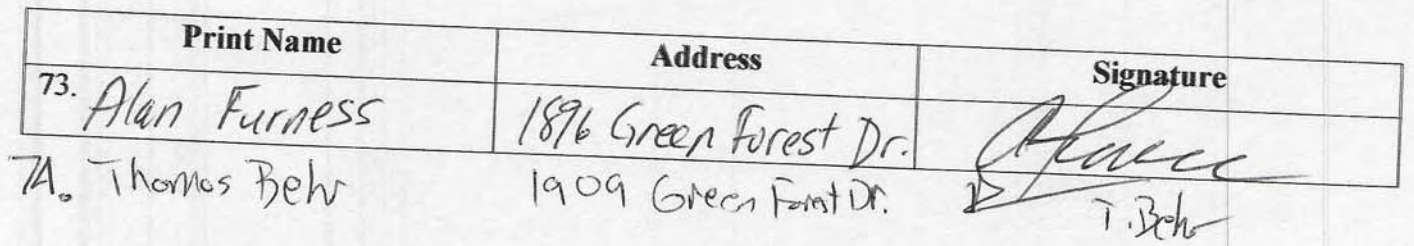 Print Name Address Signature
73. Alan Furness 1896 Green Forest Dr. A Furness
74. Thomas Behr 1909 Green Forest Dr. T. Behr